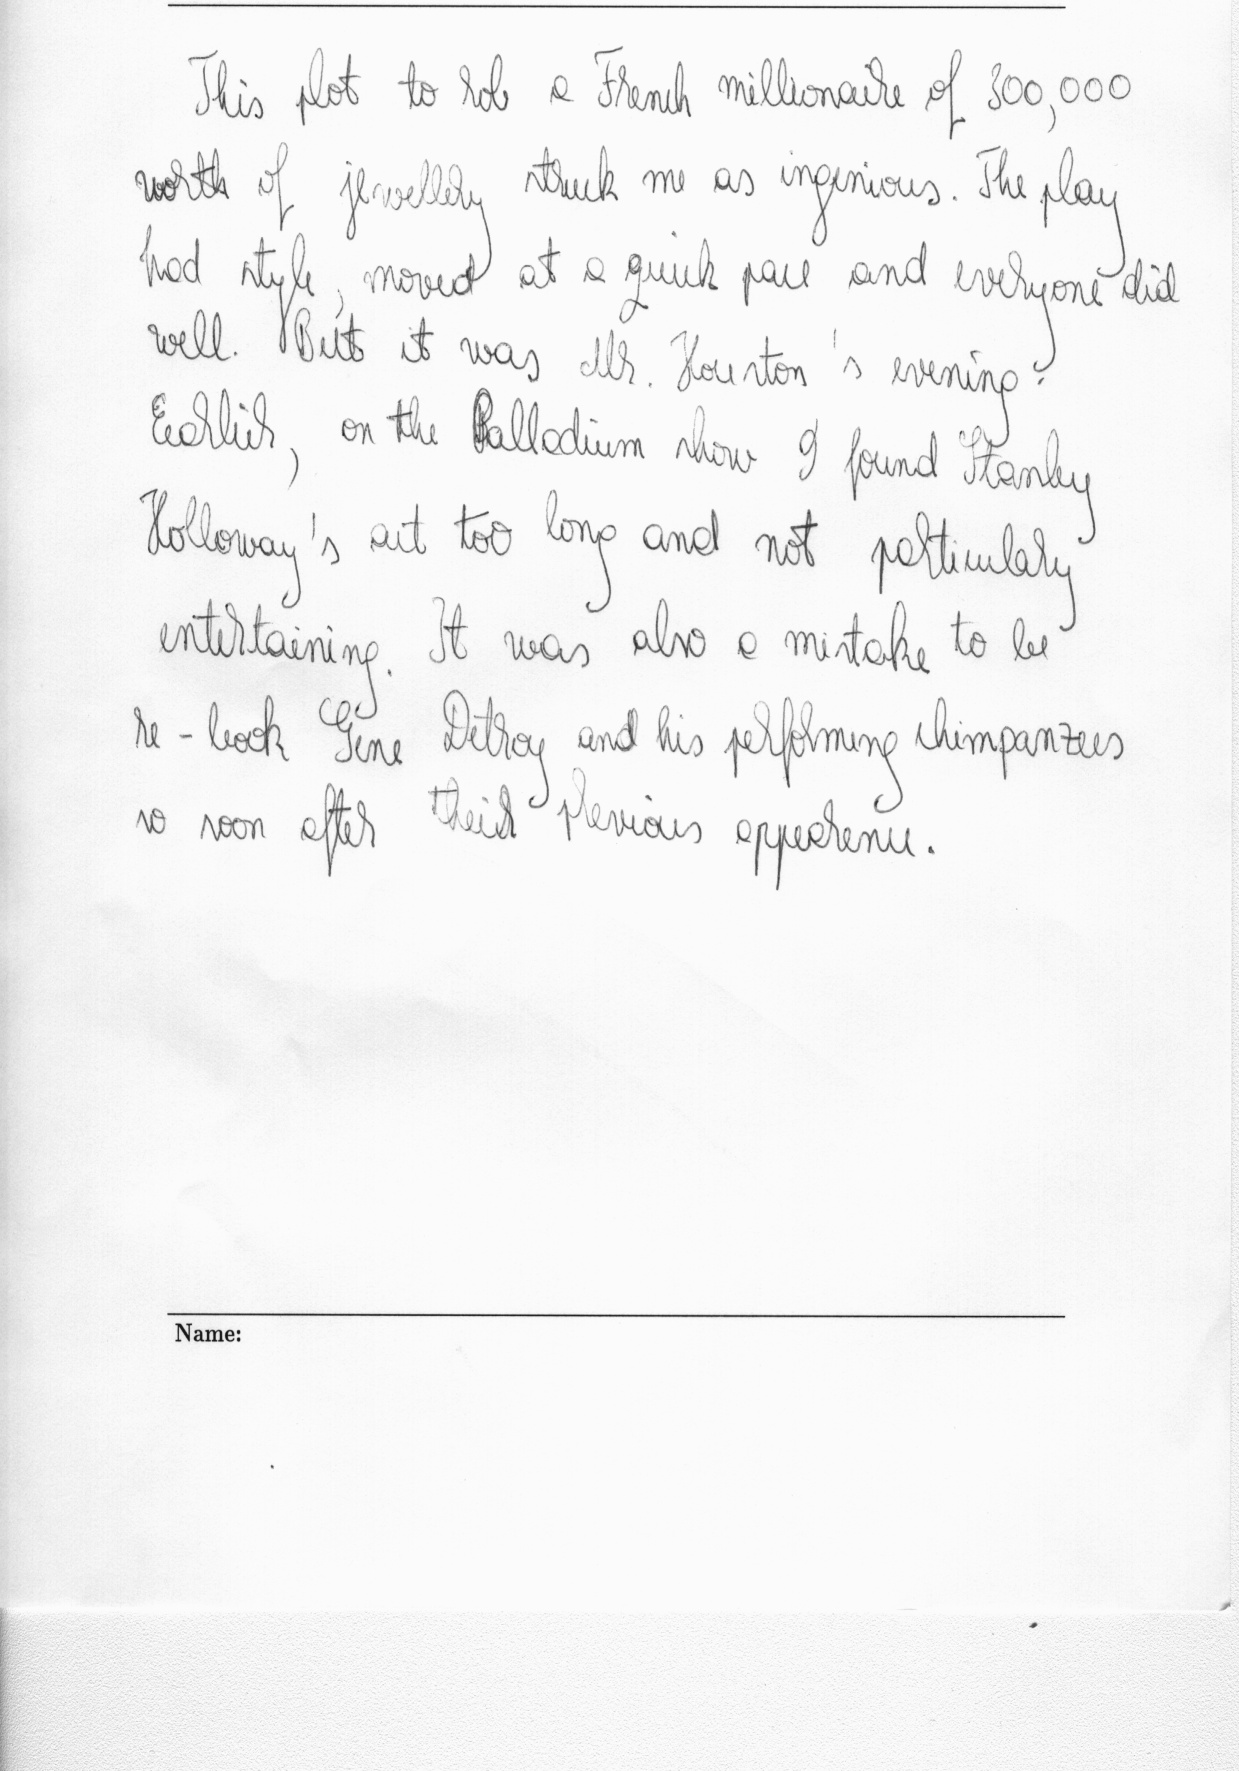 This plot to rob a French millionaire of 300,000
worth of jewellery struck me as ingenious. The play
had style, moved at a quick pace and everyone did
well. But it was Mr. Houston's evening.
Earlier, on the Palladium show I found Stanley
Holloway's act too long and not particulary
entertaining. It was also a mistake to be
re-book Gene Detroy and his performing chimpanzees
so soon after their previous appearence.
Name: